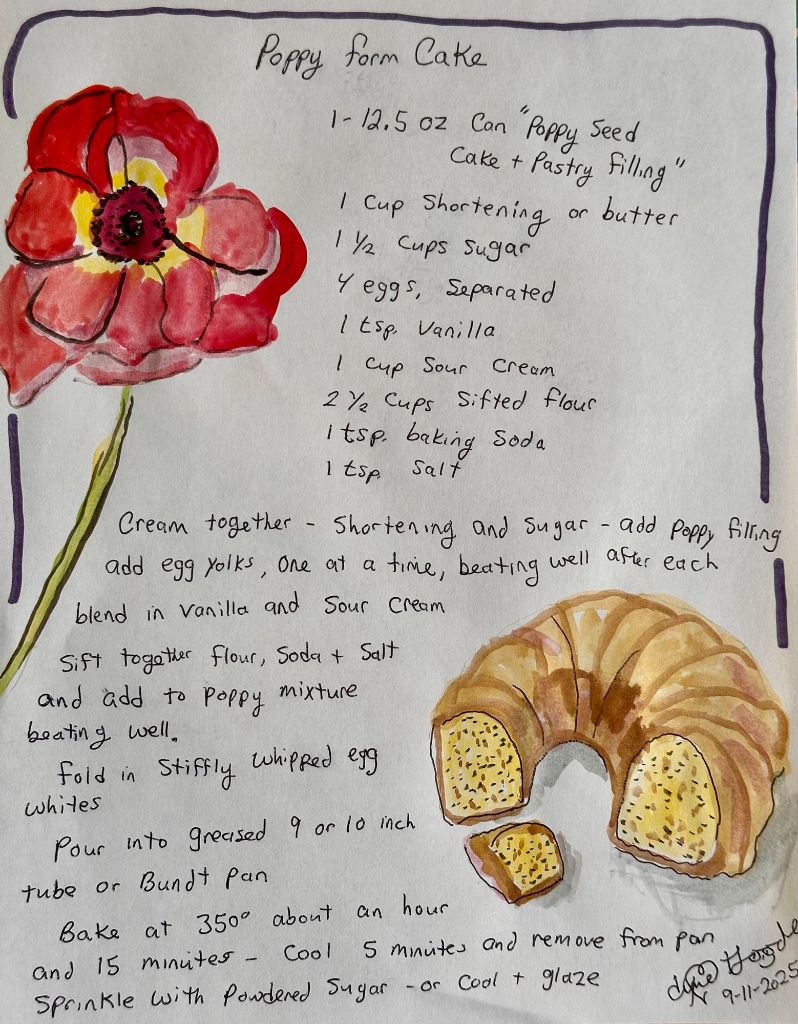 Poppy form Cake
1 - 12.5 oz Can "Poppy Seed
Cake + Pastry Filling"
1 Cup Shortening or butter
1 1/2 Cups Sugar
4 eggs, Separated
1 tsp. Vanilla
1 Cup Sour Cream
2 1/2 Cups Sifted flour
1 tsp. baking Soda
1 tsp. Salt
Cream together - Shortening and Sugar - add Poppy filling
add egg yolks, one at a time, beating well after each
blend in vanilla and Sour Cream
Sift together flour, Soda + Salt
and add to Poppy mixture
beating well.
Fold in Stiffly whipped egg
whites
Pour into greased 9 or 10 inch
tube or Bundt Pan
Bake at 350° about an hour
and 15 minutes - Cool 5 minutes and remove from pan
Sprinkle with Powdered Sugar - or Cool + glaze
9-11-2025